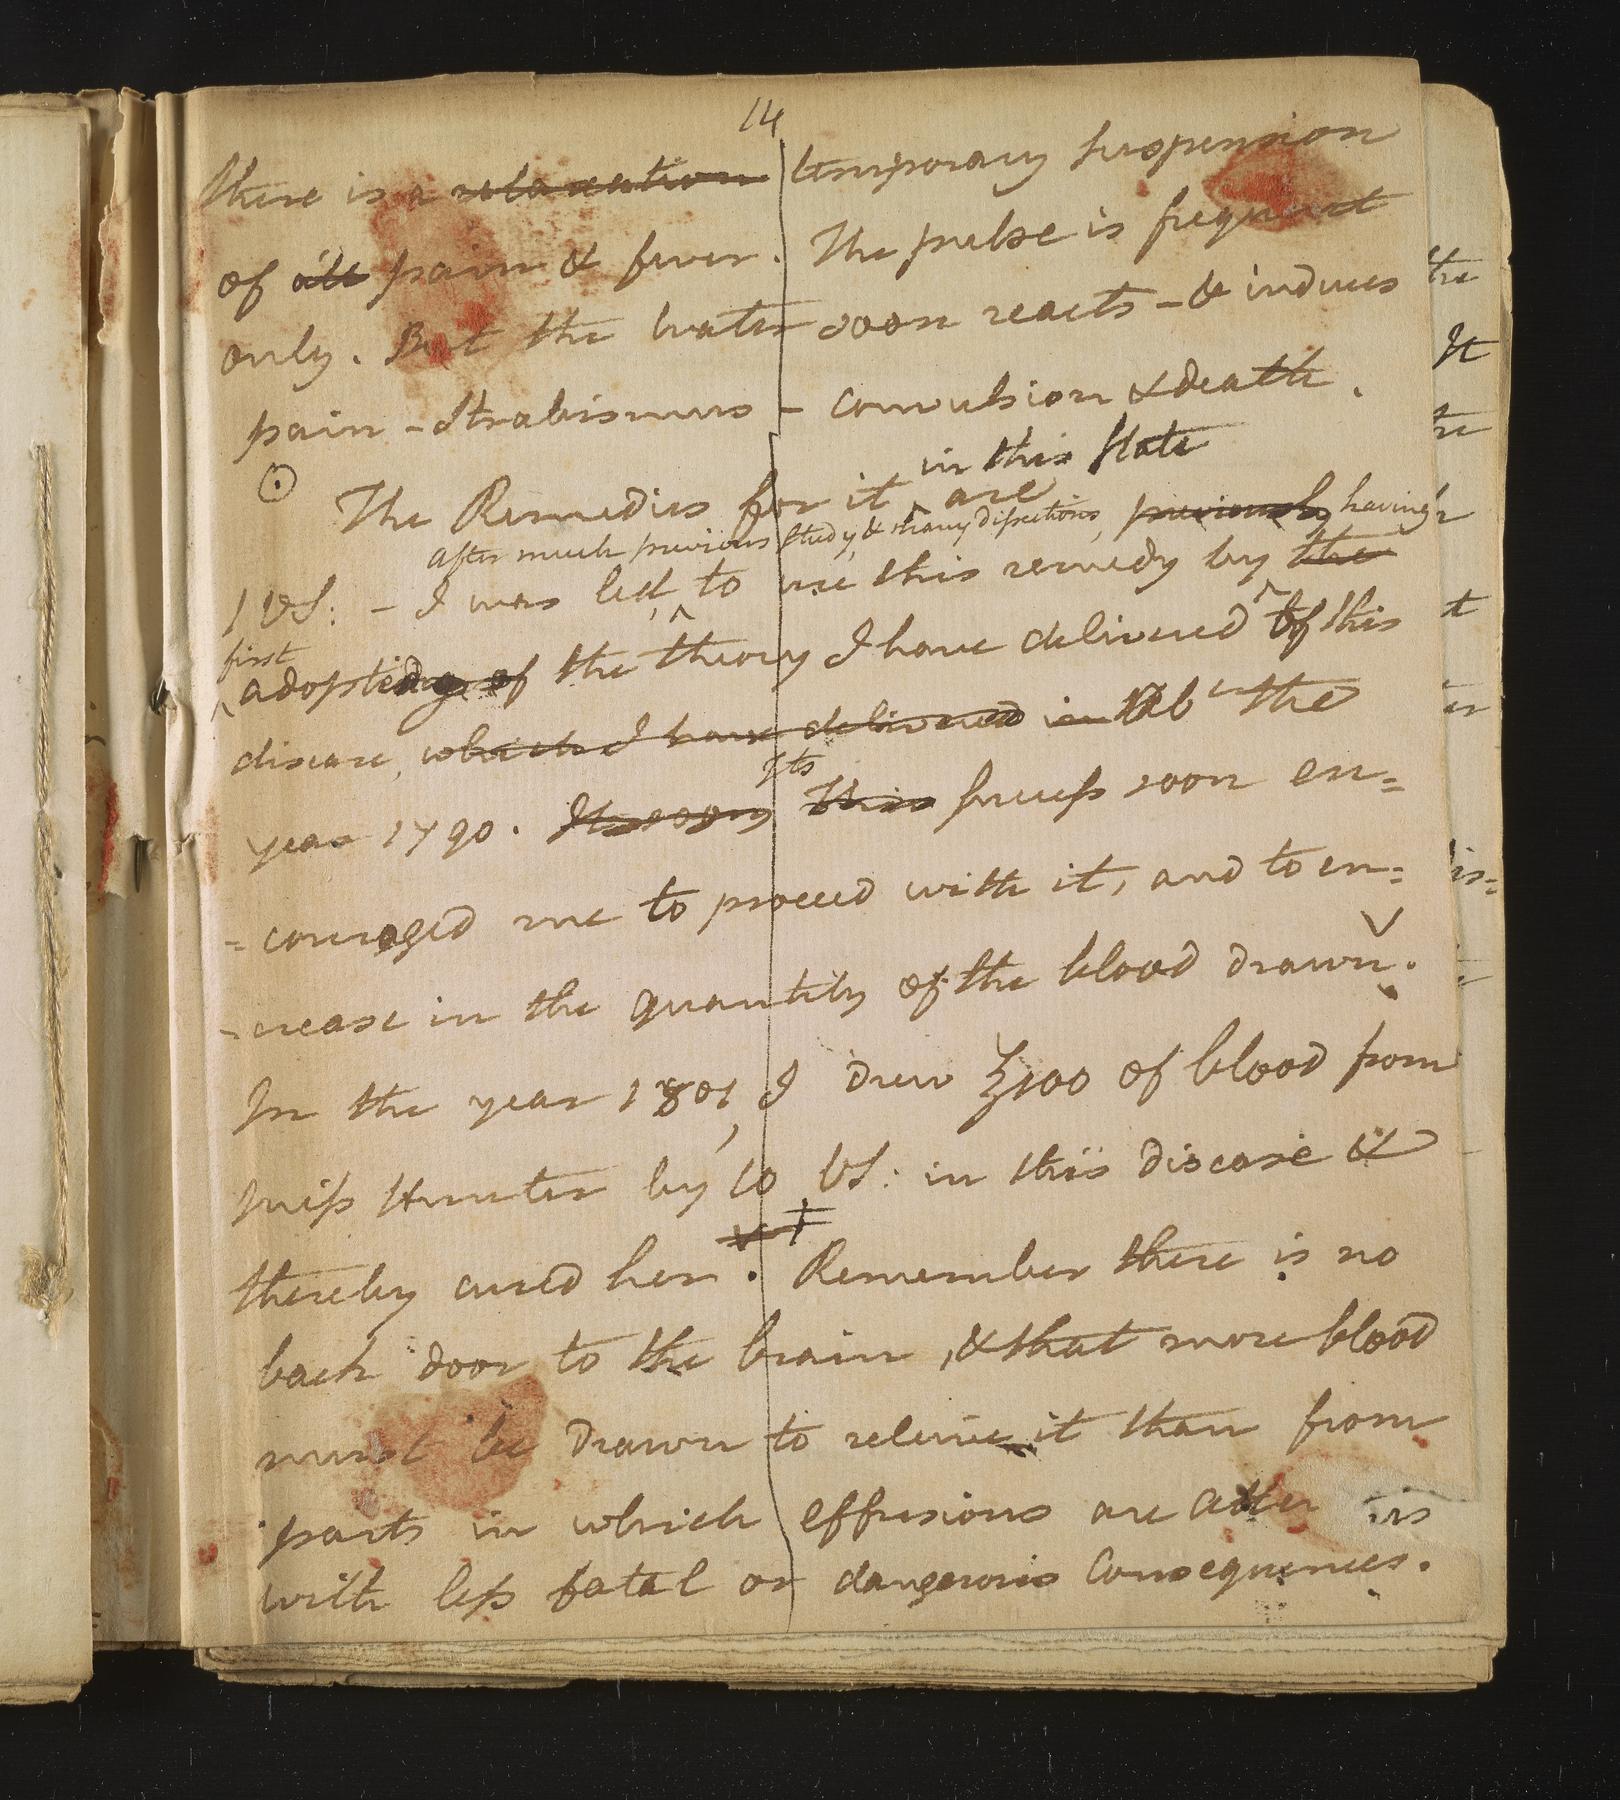 14
there is a relaxation temporary suspension
of all pain & fever. The pulse is frequent
only. But the water soon reacts - & induces
pain - Strabismus - convulsion & death.
in this State
The Remedies for it are
after much previous study, & many dissections, previously having
1 VS: - I was led, to use this remedy by the
first
adopted of the theory I have delivered of this
disease, which I have delivered in the
year 1790. Its this success soon en=
=couraged me to proceed with it, and to en=
-crease in the quantity of the blood drawn.
In the year 1801, I drew ℥100 of blood from
Miss Hunter by 10 VS: in this disease &
thereby cured her. Remember there is no
back door to the brain, & that more blood
must be drawn to relieve it than from
parts in which effusions are
with less fatal or dangerous Consequences.
the
It
t